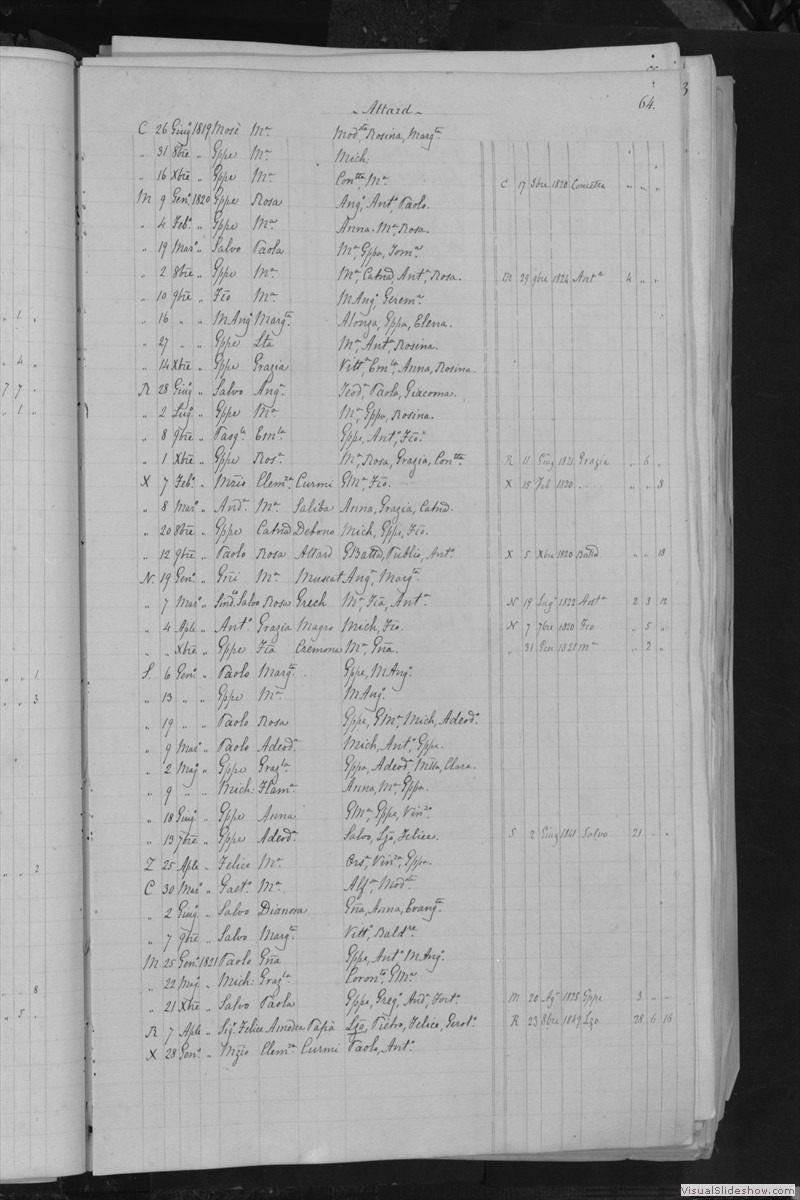 3
64.
Attard
C 26 Giug.o 1819 Mosè M.a Mod.ta, Rosina, Marg.ta
„ 31 8bre „ Gppe M.a Mich:
„ 16 Xbre „ Gppe M.a Con.tta, M.a C 17 9bre 1820 Concetta „ „ „
M 9 Gen.o 1820 Gppe Rosa Ang.o, Ant.o, Paolo.
„ 4 Feb.o „ Gppe M.a Anna-M.a, Rosa.
„ 19 Mar.o „ Salvo Paola M.a, Gppa, Tom.a
„ 2 8bre „ Gppe M.a M.a, Catnã, Ant.a, Rosa. M 29 9bre 1824 Ant.a 4 „ „
„ 10 9bre „ Fco M.a MAng.o Gerem.a
„ 16 „ „ MAng.o Marg.ta Alonza, Gppa, Elena.
„ 27 „ „ Gppe Lta M.a, Ant.a, Rosina.
„ 14 Xbre „ Gppe Grazia Vitt.a, Em.la, Anna, Rosina.
R 28 Giug.o „ Salvo Ang.a Teod.a, Paola, Giacoma.
„ 2 Lug.o „ Gppe M.a M.a, Gppa, Rosina.
„ 8 9bre „ Pasq.le Em.la Gppe, Ant.o, Fco.
„ 1 Xbre „ Gppe Ros.a M.a, Rosa, Grazia, Con.tta R 11 Giug 1821 Grazia „ 6 „
X 7 Feb.o „ Nzio Clem.za Curmi GM.a, Fco. X 15 Feb 1820 . . „ „ 8
„ 8 Mar.o „ And.a M.a Saliba Anna, Grazia, Catnã.
„ 20 8bre „ Gppe Catnã Debono Mich, Gppe, Fco.
„ 12 9bre „ Paolo Rosa Attard GBatta, Publio, Ant.o X 5 Xbre 1820 Batta „ „ 18
N 19 Gen.o „ Gñi M.a Muscat Ang.a, Marg.ta
„ 7 Mar.o „ Sind.o Salvo Rosa Grech M.a, Fca, Ant.a N 19 Lug.o 1822 Ant.a 2 3 12
„ 4 Aple „ Ant.o Grazia Magro Mich, Fco. N 7 7bre 1820 Fco „ 5 „
„ „ Xbre „ Gppe Fca Cremona M.a, Gña. „ 31 Gen 1821 M.a „ 2 „
S. 6 Gen.o „ Paolo Marg.ta Gppe, MAng.o
„ 13 „ „ Gppe M.a MAng.o
„ 19 „ „ Paolo Rosa Gppe, GM.a, Mich, Adeod.o
„ 9 Mar.o „ Paolo Adeod.a Mich, Ant.o, Gppe.
„ 2 Mag.o „ Gppe Graz.la Gppa, Adeod.a, Clara.
„ 9 „ „ Mich: Flam.a Anna, M.a, Gppa.
„ 18 Giug.o „ Gppe Anna GM.a, Gppe, Vin.zo
„ 13 7bre „ Gppe Adeod.a Salvo, Lzo, Felice. S 2 Giug 1841 Salvo 21 „ „
Z 25 Aple „ Felice M.a Ors.a, Vin.za, Gppa.
C 30 Mar.o „ Gaet.o M.a Mod.ta
„ 2 Giug.o „ Salvo Dianora Gña, Anna, Evang.ta
„ 7 9bre „ Salvo Marg.ta Vitt.o, Bald.re
M 25 Gen.o 1821 Paolo Gña Gppe, Ant.o, MAng.o
„ 22 Mag.o „ Mich: Graz.la Coron.to, GM.a
„ 21 Xbre „ Salvo Paola Gppe, Greg.o, And.a, Fort.o M 20 Ag.o 1825 Gppe 3 „ „
R 7 Aple „ Sig. Felice Amedea Papia Lzo, Pietro, Felice, Gerol.o R 23 8bre 1849 Lzo 28 6 16
X 28 Gen.o „ Nzio Clem.za Curmi Paolo, Ant.o
„ 1 „
„ 4 „
7 7 „
„ 1 „
„ „ 1
„ „ 3
„ „ 2
„ „ 8
„ 5 „
VisualSlideshow.com